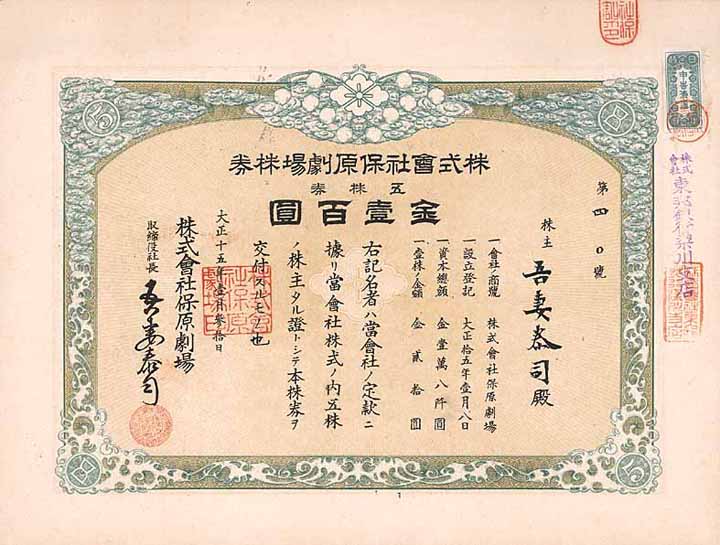 株式會社保原劇場株券
五株券
金壹百圓
第四〇號
株主 吾妻泰司殿
一會社ノ商號 株式會社保原劇場
一設立登記 大正拾五年壹月八日
一資本總額 金壹萬八阡圓
一壹株ノ金額 金貳拾圓
右記名者ハ當會社ノ定款ニ
據リ當會社株式ノ內五株
ノ株主タル證トシテ本株券ヲ
交付スルモノ也
大正十五年壹月參拾日
株式會社保原劇場
取締役社長 吾妻泰司
株式會社保原劇場印
株式會社
支店